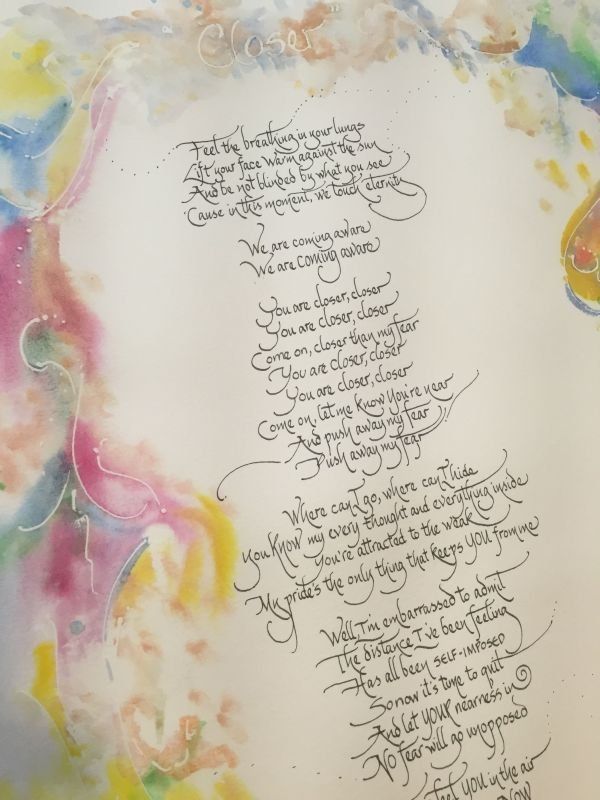 Closer
Feel the breathing in your lungs
Lift your face warm against the sun
And be not blinded by what you see
'Cause in this moment, we touch eternity
We are coming aware
We are coming aware
You are closer, closer
You are closer, closer
Come on, closer than my fear
You are closer, closer
You are closer, closer
Come on, let me know you're near
And push away my fear
Push away my fear
Where can I go, where can I hide
You know my every thought and everything inside
You're attracted to the weak
My pride's the only thing that keeps YOU from me
Well, I'm embarrassed to admit
The distance I've been feeling
Has all been SELF-IMPOSED
So now it's time to quit
And let YOUR nearness in
No fear will go unopposed
feel YOU in the air
NOW